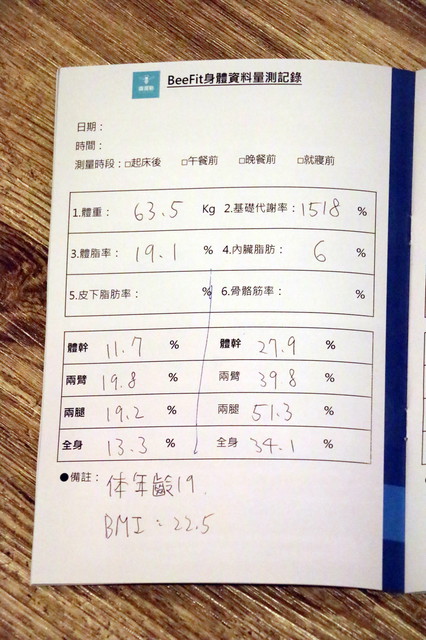 BeeFit身體資料量測記錄
日期：
時間：
測量時段：□起床後 □午餐前 □晚餐前 □就寢前
1.體重： 63.5 Kg 2.基礎代謝率：1518 %
3.體脂率： 19.1 % 4.內臟脂肪： 6 %
5.皮下脂肪率： % 6.骨骼筋率： %
體幹 11.7 % 體幹 27.9 %
兩臂 19.8 % 兩臂 39.8 %
兩腿 19.2 % 兩腿 51.3 %
全身 13.3 % 全身 34.1 %
●備註： 体年齡19.
BMI：22.5